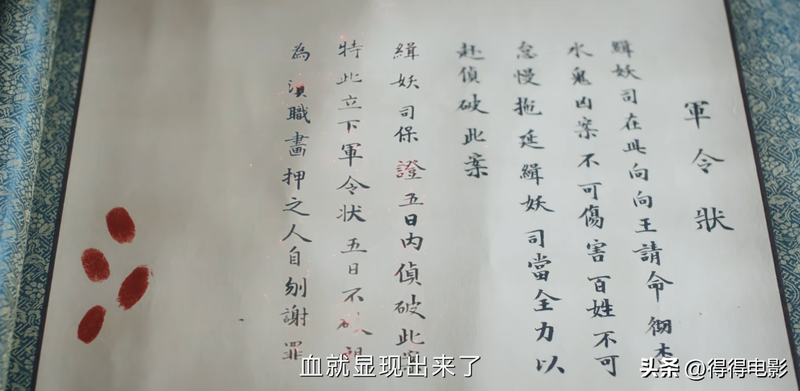 軍令狀
緝妖司在此向向王請命徹查
水鬼凶案不可傷害百姓不可
怠慢拖延緝妖司當全力以
赴偵破此案
緝妖司保證五日內偵破此案
特此立下軍令状五日不破
為瀆職畫押之人自刎謝罪
血就显现出来了
头条 @得得电影